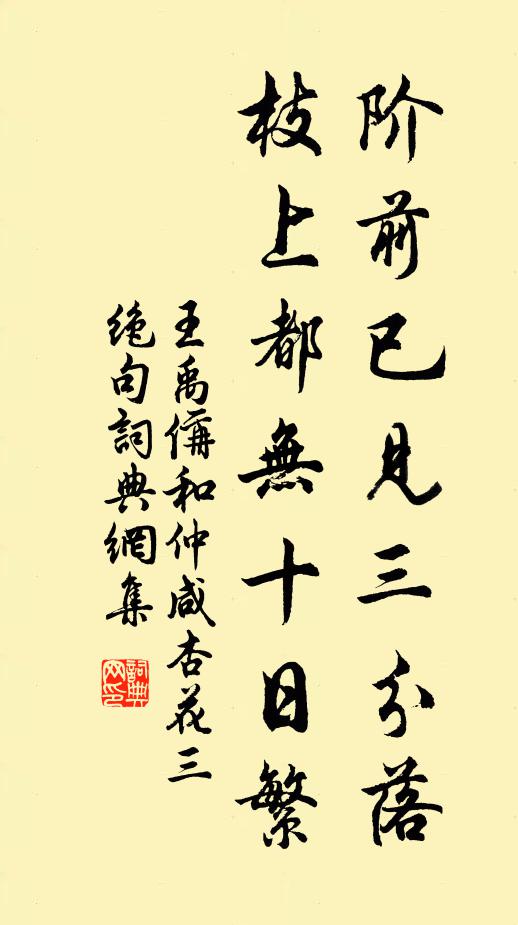 阶前已见三分落
枝上都無十日繁
王禹偁和仲咸杏花三
绝句詞典網集
詞典网印